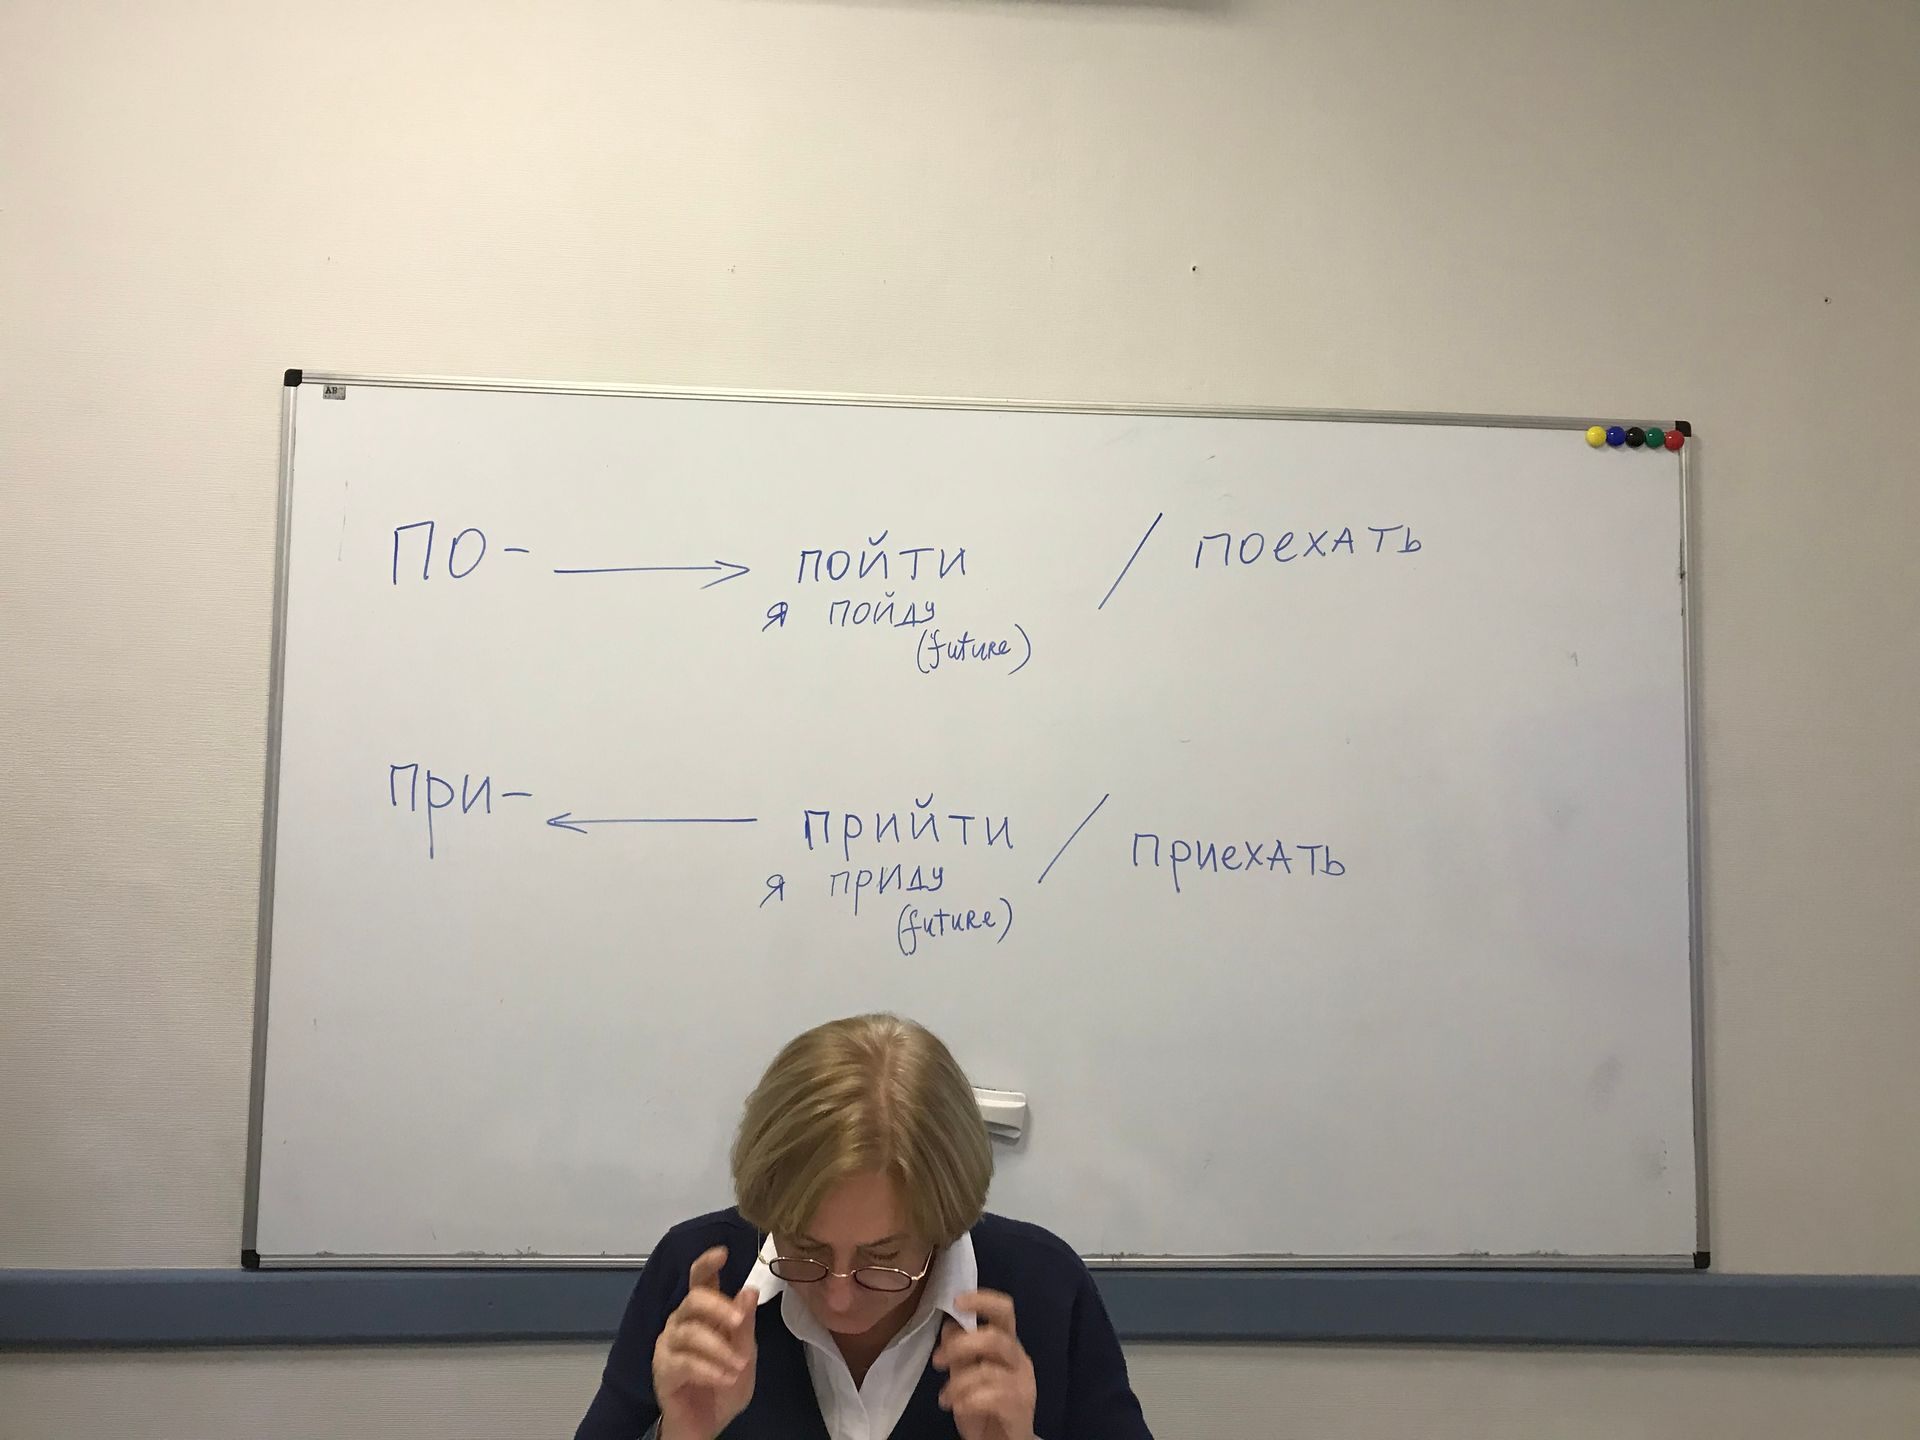 ПО- → пойти / поехать
я пойду
(future)
при- ← прийти / приехать
я приду
(future)